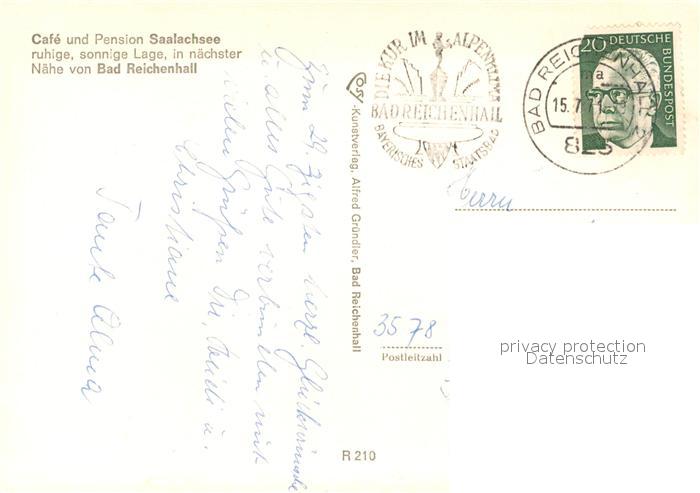 Café und Pension Saalachsee
ruhige, sonnige Lage, in nächster
Nähe von Bad Reichenhall
DIE KUR IM ALPENKLIMA
BAD REICHENHALL
BAYERISCHES STAATSBAD
BAD REICHENHALL
15.7.71
823
20 DEUTSCHE BUNDESPOST
Zum 29. zigsten herzl. Glückwünsche
u. alles Gute verbunden mit
vielen Grüßen
Christiane
Tante Alma
Kunstverlag, Alfred Gründler, Bad Reichenhall
Herrn
3578
Postleitzahl
privacy protection
Datenschutz
R 210